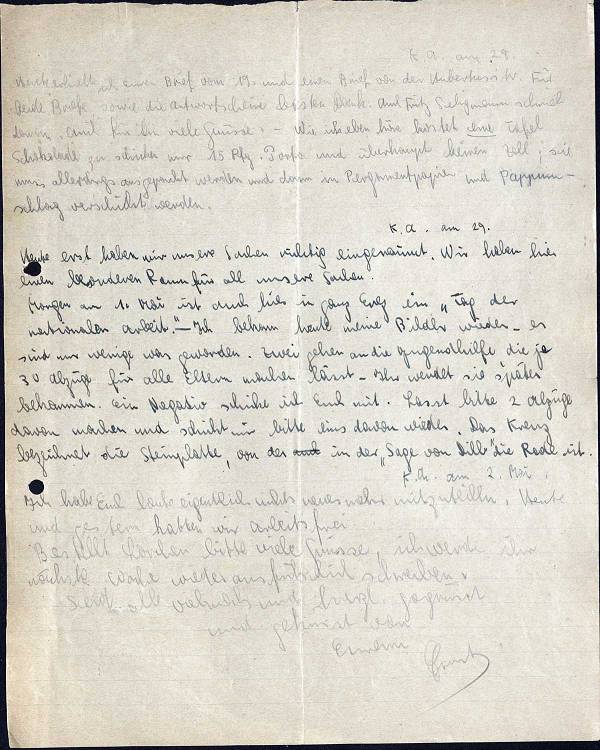 K.A. am 28.
ich euren Brief vom 19. und einen Brief von der Für
beide Briefe sowie die Antwortscheine besten Dank. Fritz Seligmann schrieb
für ihn viele Grüsse. – Wie ich eben höre kostet eine Tafel
Schokolade zu schicken nur 15 Pfg. Porto und überhaupt keinen Zoll; sie
muss allerdings ausgepackt werden und dann in Pergamentpapier und Pappum-
schlag verschickt werden.
K.A. am 29.
Heute erst haben wir unsere Sachen richtig eingeräumt. Wir haben hier
einen besonderen Raum für all unsere Sachen.
Morgen am 1. Mai ist auch hier in ganz Erez ein „Tag der
nationalen Arbeit." – Ich bekam heute meine Bilder wieder – es
sind nur wenige was geworden. Zwei gehen an die Jugendhilfe die je
30 Abzüge für alle Eltern machen lässt – Ihr werdet sie später
bekommen. Ein Negativ schicke ich Euch mit. Lasst bitte 2 Abzüge
davon machen und schickt mir bitte eins davon wieder. Das Kreuz
bezeichnet die Steinplatte, von der in der „Sage von Dilb" die Rede ist.
K.A. am 2. Mai.
Ich habe Euch heute eigentlich nichts neues mehr mitzuteilen. Heute
und gestern hatten wir arbeitsfrei.
Bestellt bitte viele Grüsse, ich werde ihr
nächste Woche wieder ausführlich schreiben.
Seid alle vielmals und herzl. gegrüsst
und geküsst von
Eurem Ernst